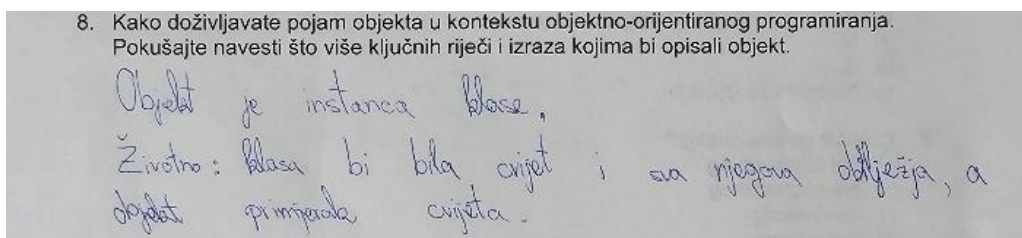 8. Kako doživljavate pojam objekta u kontekstu objektno-orijentiranog programiranja.
Pokušajte navesti što više ključnih riječi i izraza kojima bi opisali objekt.
Objekt je instanca klase,
Životno: klasa bi bila cvijet i sva njegova obilježja, a
objekt primjerak cvijeta.